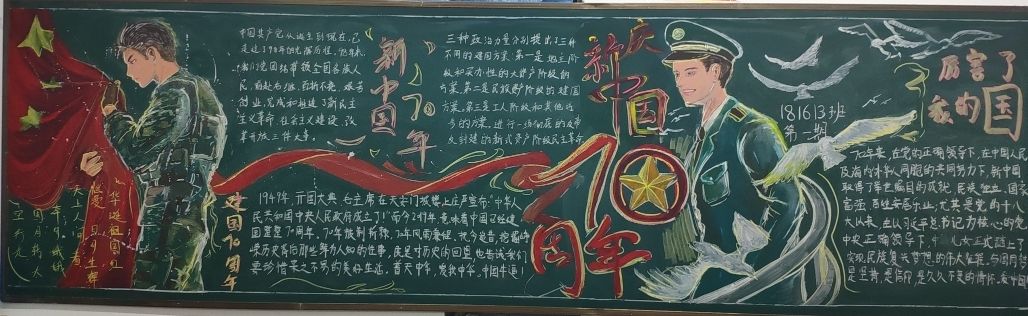 中国共产党从诞生到现在,已
走过了98年的光辉历程,98年来,
我们党团结带领全国各族人
民,前赴后继、百折不挠、艰苦
创业,完成和推进了新民主
主义革命、社会主义建设、改
革开放三件大事。
新中国
70年
三种政治力量分别提出了三种
不同的建国方案。第一是地主阶
级和买办性的大资产阶级的
方案。第二是民族资产阶级的建国
方案。第三是工人阶级和其他进
步的方案,进行一场彻底的反帝
反封建的新式资产阶级民主革命
庆
新中国
70
周年
厉害了
我的国
181613班
第一期
70年来,在党的正确领导下,在中国人民
及海内外华人同胞的共同努力下,新中国
取得了举世瞩目的成就,民族独立,国家
富强,百姓安居乐业,尤其是党的十八
大以来,在以习近平总书记为核心的党
中央正确领导下,中 儿女正式踏上了
实现民族复兴梦想的伟大征程。与国同梦
是坚持,是信仰,是久久不变的情怀。爱中国
建国70周年
1949年,开国大典,毛主席在天安门城楼上庄严宣布:“中华人
民共和国中央人民政府成立了!”而今2019年,意味着中国已经建
国整整70周年。70年披荆斩棘,70年风雨兼程,抚今追昔,挖掘峥
嵘岁月背后那些鲜为人知的往事,民族对历史的回望也告诫我们
要珍惜来之不易的美好生活。首先中华,发扬中华,中国牛逼!